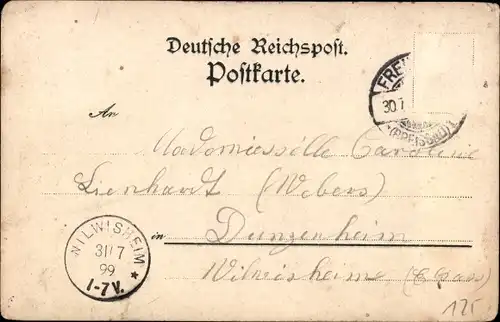 Deutsche Reichspost.
Postkarte.
FREI
30 7
(BREISGAU) 1
An
Mademoiselle Caroline
Lienhardt (Webers)
in Dunzenheim
Wilwisheim (Elsass)
WILWISHEIM
31 7
99
1-7V.
125